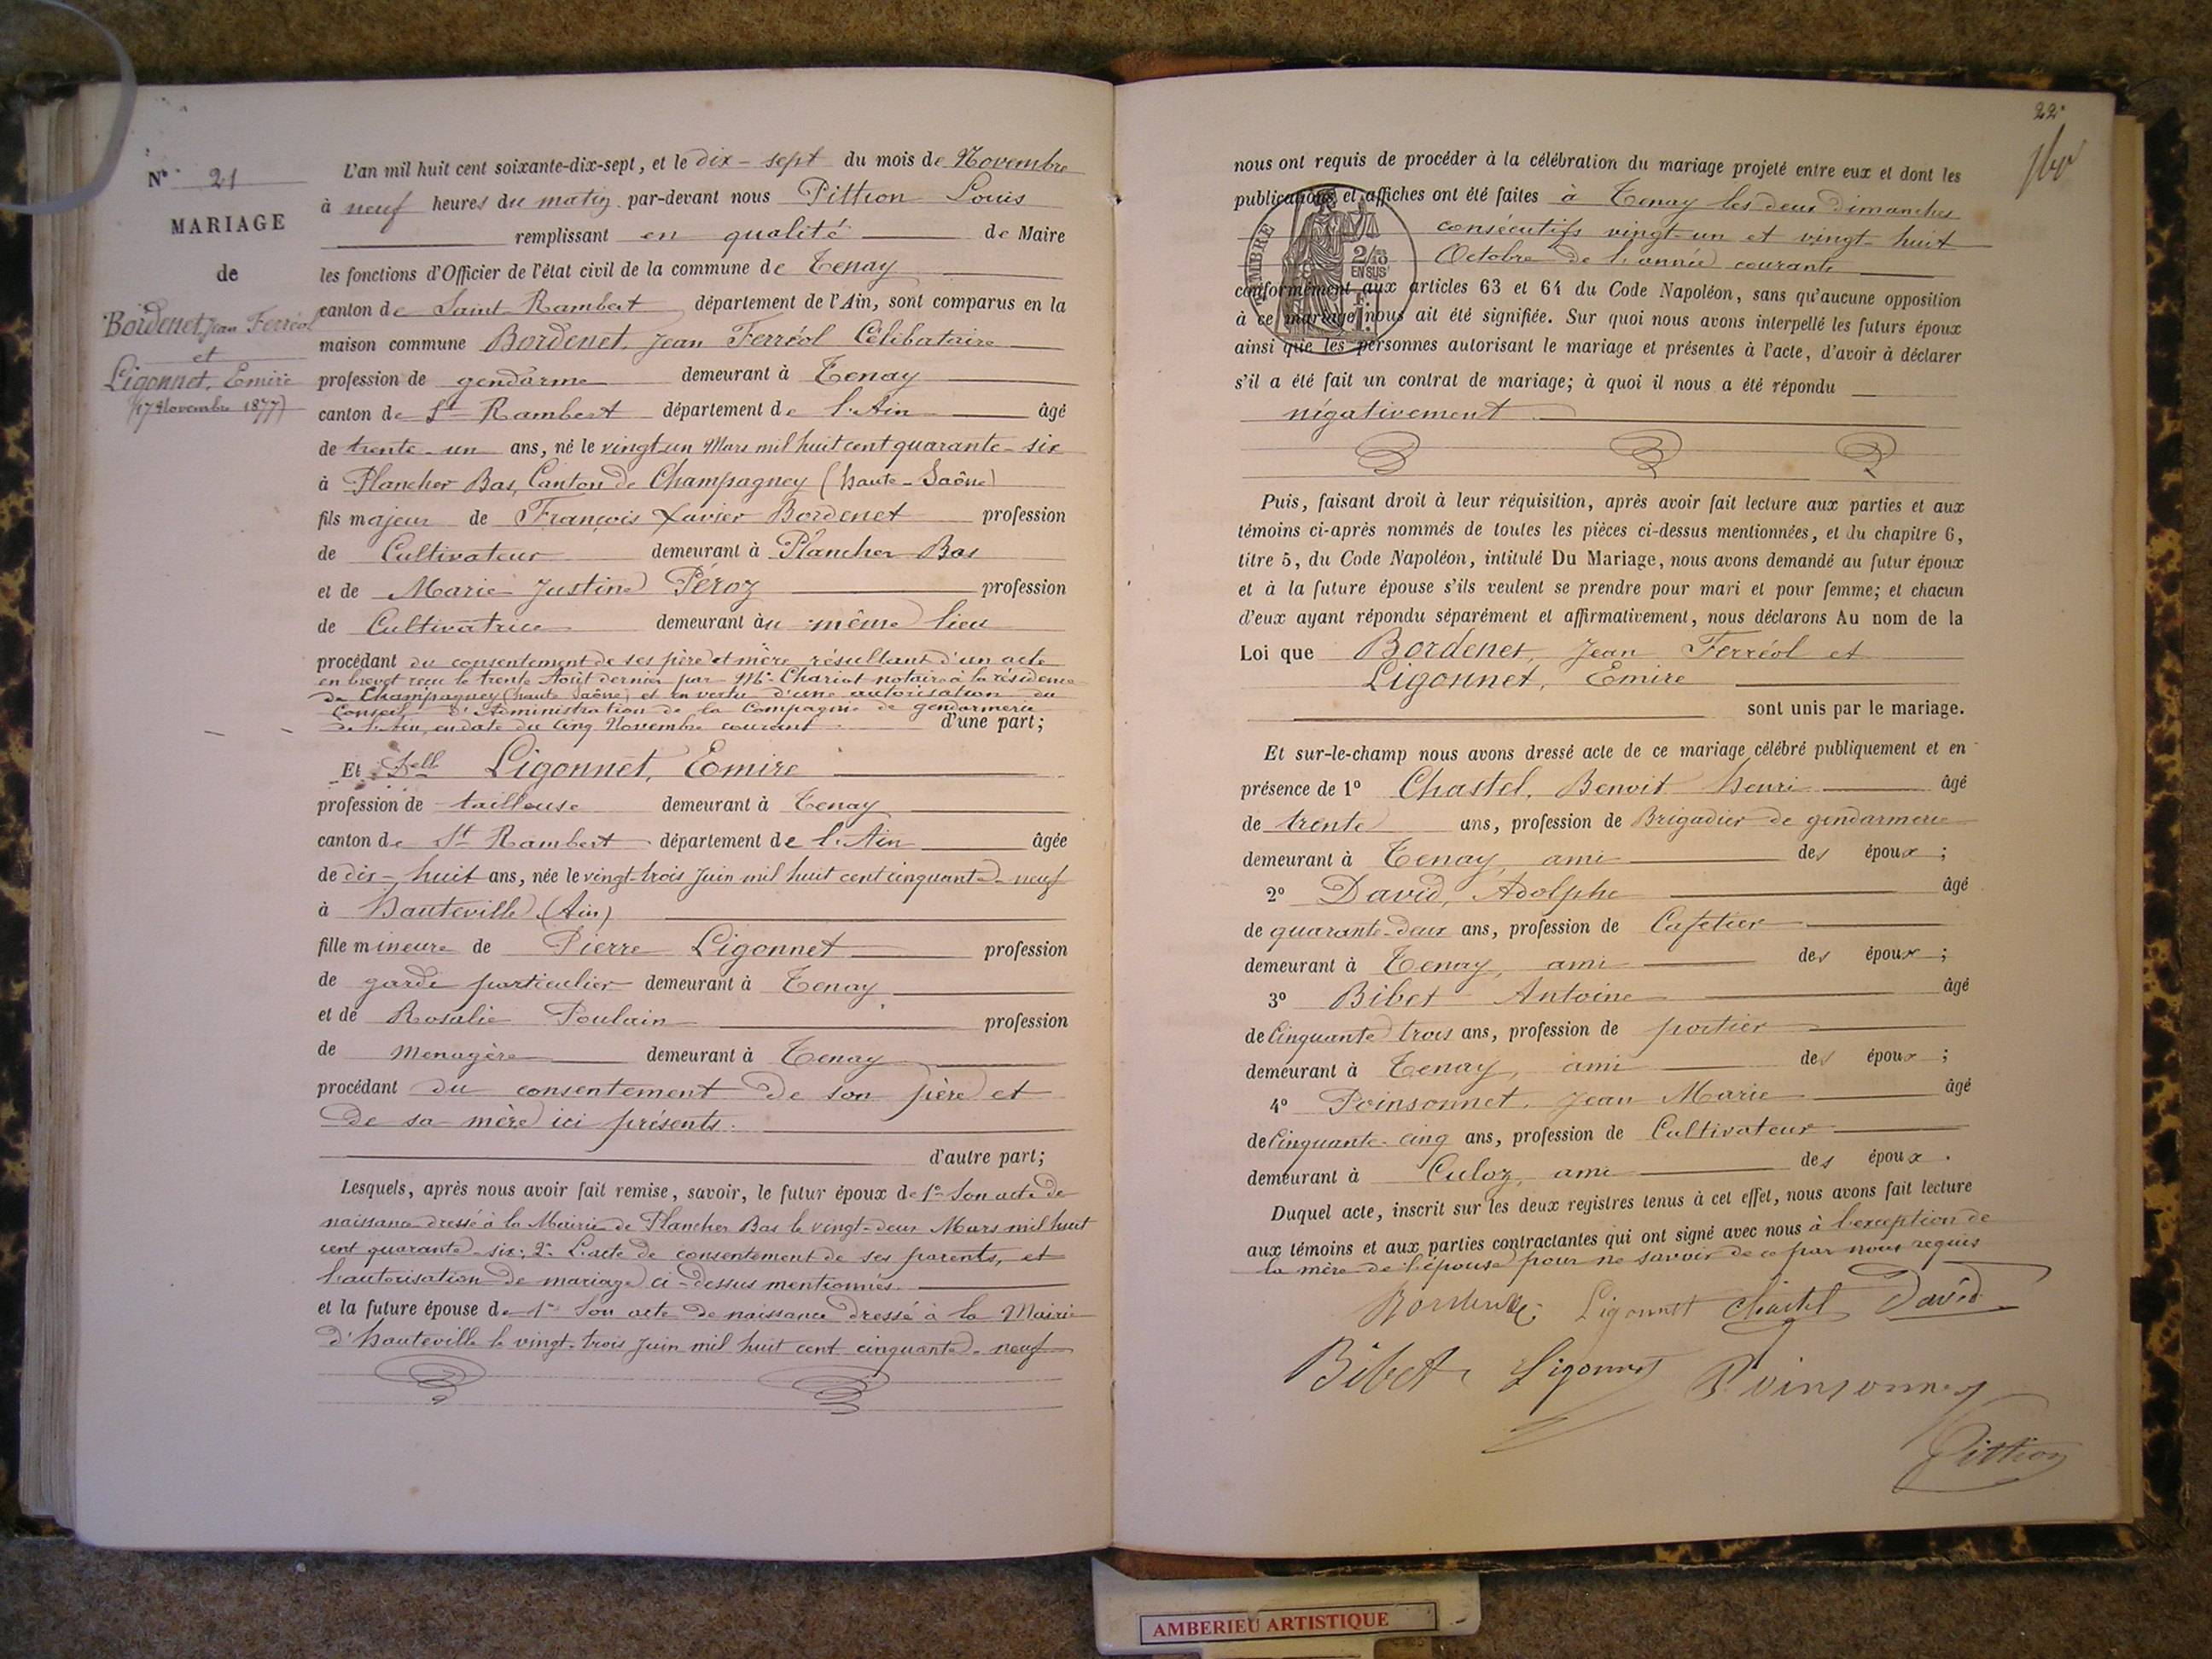 N° 21
MARIAGE
de
Bordenet, Jean Ferréol
et
Ligonnet, Emire
(17 Novembre 1877)
L'an mil huit cent soixante-dix-sept, et le dix-sept du mois de Novembre
à neuf heures du matin par-devant nous Pittion Louis
remplissant en qualité de Maire
les fonctions d'Officier de l'état civil de la commune de Tenay
canton de Saint-Rambert département de l'Ain, sont comparus en la
maison commune Bordenet, Jean Ferréol Célibataire
profession de gendarme demeurant à Tenay
canton de St Rambert département de l'Ain âgé
de trente-un ans, né le vingt-un Mars mil huit cent quarante-six
à Plancher Bas, Canton de Champagney (haute-Saône)
fils majeur de François Xavier Bordenet profession
de Cultivateur demeurant à Plancher Bas
et de Marie Justine Péroz profession
de Cultivatrice demeurant au même lieu
procédant du consentement de ses père et mère résultant d'un acte
en brevet reçu le trente Août dernier par Me Chariot notaire à la résidence
de Champagney (haute Saône) et en vertu d'une autorisation du
Conseil d'Administration de la Compagnie de gendarmerie
de l'Ain, en date du cinq Novembre courant d'une part;
Et Delle Ligonnet, Emire
profession de tailleuse demeurant à Tenay
canton de St Rambert département de l'Ain âgée
de dix-huit ans, née le vingt-trois Juin mil huit cent cinquante-neuf
à Hauteville (Ain)
fille mineure de Pierre Ligonnet profession
de garde particulier demeurant à Tenay
et de Rosalie Poulain profession
de menagère demeurant à Tenay
procédant du consentement de son père et
de sa mère ici présents.
d'autre part;
Lesquels, après nous avoir fait remise, savoir, le futur époux de 1° Son acte de
naissance dressé à la Mairie de Plancher Bas le vingt-deux Mars mil huit
cent quarante-six; 2° L'acte de consentement de ses parents, et
l'autorisation de mariage ci-dessus mentionnés.
et la future épouse de 1° Son acte de naissance dressé à la Mairie
d'hauteville le vingt-trois Juin mil huit cent cinquante-neuf
22
nous ont requis de procéder à la célébration du mariage projeté entre eux et dont les
publications et affiches ont été faites à Tenay les deux dimanches
consécutifs vingt-un et vingt-huit
Octobre de l'année courante
TIMBRE
2/10
EN SUS
conformément aux articles 63 et 64 du Code Napoléon, sans qu'aucune opposition
à ce mariage nous ait été signifiée. Sur quoi nous avons interpellé les futurs époux
ainsi que les personnes autorisant le mariage et présentes à l'acte, d'avoir à déclarer
s'il a été fait un contrat de mariage; à quoi il nous a été répondu
négativement
Puis, faisant droit à leur réquisition, après avoir fait lecture aux parties et aux
témoins ci-après nommés de toutes les pièces ci-dessus mentionnées, et du chapitre 6,
titre 5, du Code Napoléon, intitulé Du Mariage, nous avons demandé au futur époux
et à la future épouse s'ils veulent se prendre pour mari et pour femme; et chacun
d'eux ayant répondu séparément et affirmativement, nous déclarons Au nom de la
Loi que Bordenet, Jean Ferréol et
Ligonnet, Emire
sont unis par le mariage.
Et sur-le-champ nous avons dressé acte de ce mariage célébré publiquement et en
présence de 1° Chastel, Benoit Henri âgé
de trente ans, profession de Brigadier de gendarmerie
demeurant à Tenay, ami des époux;
2° David, Adolphe âgé
de quarante-deux ans, profession de Cafetier
demeurant à Tenay, ami des époux;
3° Bibet Antoine âgé
de Cinquante trois ans, profession de portier
demeurant à Tenay, ami des époux;
4° Poinsonnet, Jean Marie âgé
de Cinquante-cinq ans, profession de Cultivateur
demeurant à Culoz, ami des époux.
Duquel acte, inscrit sur les deux registres tenus à cet effet, nous avons fait lecture
aux témoins et aux parties contractantes qui ont signé avec nous à l'exception de
la mère de l'épouse pour ne savoir de ce par nous requis
Bordenet Ligonnet Chastel David
Bibet Ligonnet Poinsonnet
Pittion
AMBERIEU ARTISTIQUE